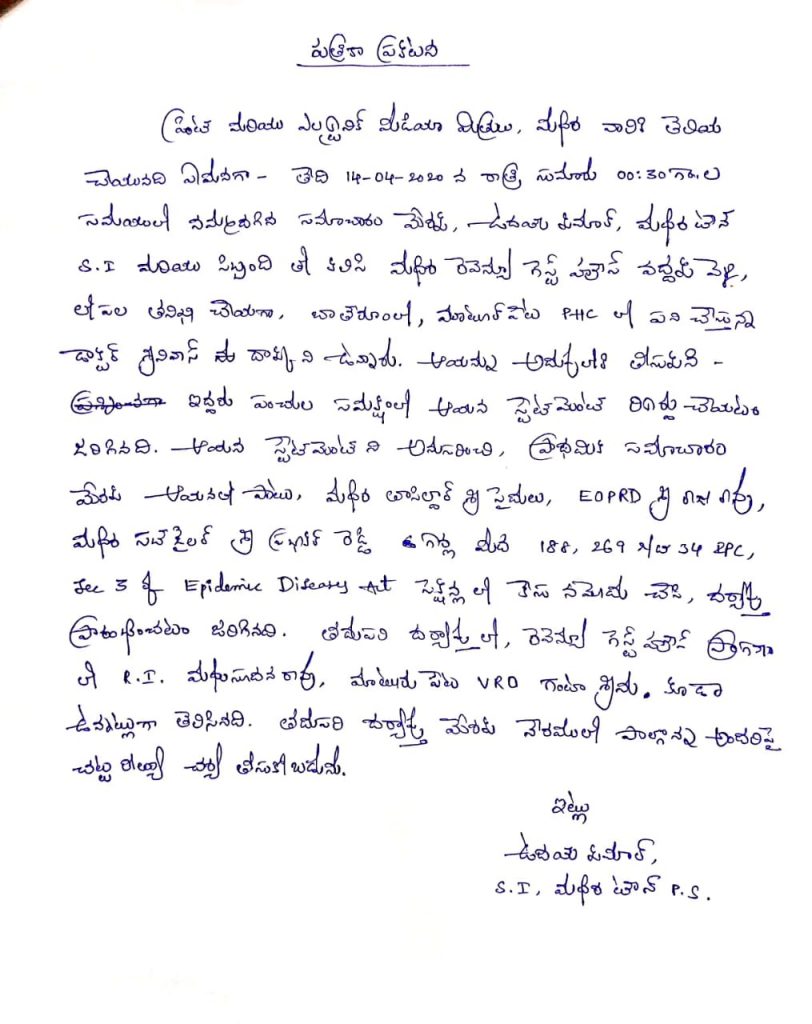 పత్రికా ప్రకటన
ప్రింట్ మరియు ఎలక్ట్రానిక్ మీడియా మిత్రులు, మధిర వారికి తెలియ
చేయునది ఏమనగా - తేది 14-04-2020 న రాత్రి సుమారు 00:30 గం.ల
సమయంలో నమ్మదగిన సమాచారం మేరకు, ఉదయ్ కుమార్, మధిర టౌన్
S.I మరియు సిబ్బంది తో కలిసి మధిర రెవెన్యూ గెస్ట్ హౌస్ వద్దకు వెళ్లి,
లోపల తనిఖీ చేయగా, బాత్రూంలో, మాటూర్ పేట PHC లో పని చేస్తున్న
డాక్టర్ శ్రీనివాస్ దాక్కుని ఉన్నారు. ఆయన్ను అదుపులోకి తీసుకుని -
ఇద్దరు పంచుల సమక్షంలో ఆయన స్టేట్ మెంట్ రికార్డు చేయటం
జరిగినది. ఆయన స్టేట్ మెంట్ ని అనుసరించి, ప్రాథమిక సమాచారం
మేరకు ఆయనతో పాటు, మధిర తాసిల్దార్ శ్రీ సైదులు, EOPRD శ్రీ రాజా రావు,
మధిర సబ్ జైలర్ శ్రీ ప్రభాకర్ రెడ్డి ల మీద 188, 269 r/w 34 IPC,
Sec 3 of Epidemic Diseases Act సెక్షన్ల లో కేసు నమోదు చేసి, దర్యాప్తు
ప్రారంభించటం జరిగినది. తదుపరి దర్యాప్తు లో, రెవెన్యూ గెస్ట్ హౌస్ ప్రాంగణం
లో R.I. మధుసూదన రావు, మాటూరు పేట VRO గంటా శ్రీను. కూడా
ఉన్నట్లుగా తెలిసినది. తదుపరి దర్యాప్తు మేరకు నేరములో పాల్గొన్న అందరిపై
చట్ట రీత్యా చర్య తీసుకోబడును.
ఇట్లు
ఉదయ్ కుమార్,
S.I, మధిర టౌన్ P.S.